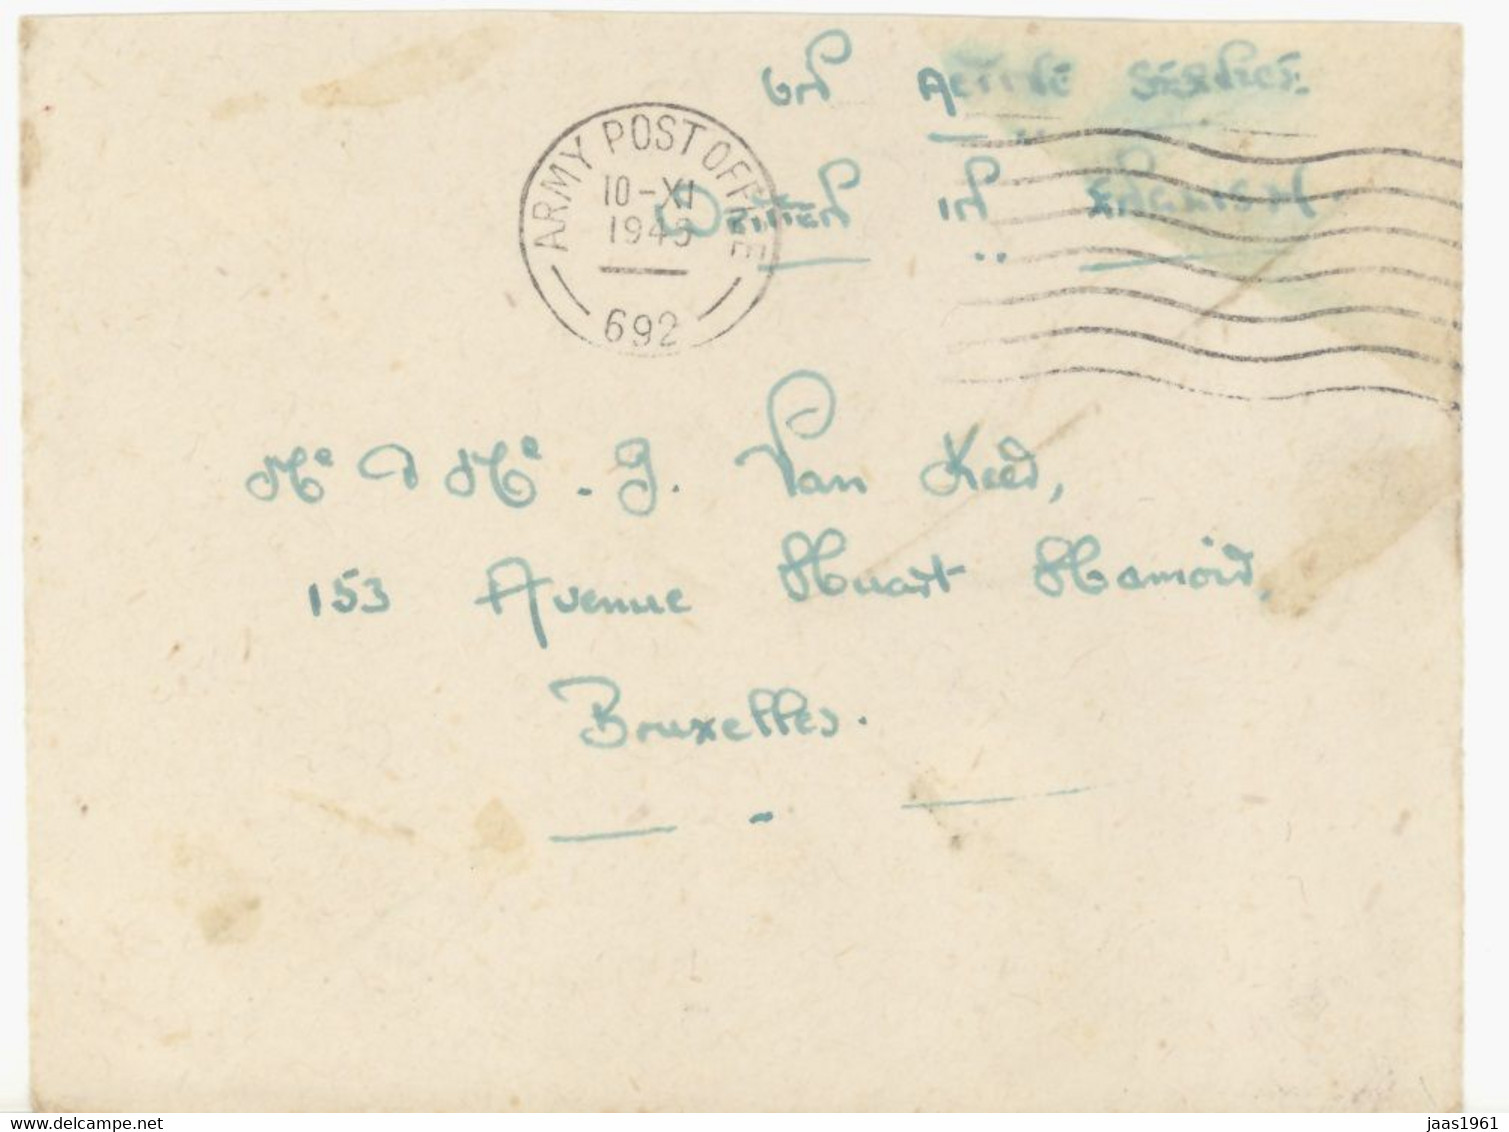 on Active Service.
ARMY POST OFFICE
10-XI
194
692
Written in English.
Mr & Mr. J. Van
153 Avenue Huart Hamoir,
Bruxelles.
www.delcampe.net
jaas1961